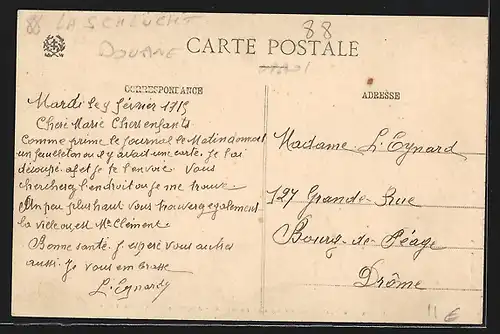 88 LA SCHLUCHT
88
DOUANE
CARTE POSTALE
CORRESPONDANCE
ADRESSE
Mardi le 9 février 1915
Chère Marie Chers enfants
Comme prime le journal le Matin donnait
un feuilleton ou il y avait une carte. Je l'ai
découpé et je te l'envoie. Vous
chercherez l'endroit ou je me trouve.
Un peu plus haut vous trouverez également
la ville ou est Mr Clément.
Bonne santé. J'espère vous autres
aussi. Je vous embrasse
L. Eynard
Madame L. Eynard
127 Grande-Rue
Bourg-de-Péage
Drôme
11 €